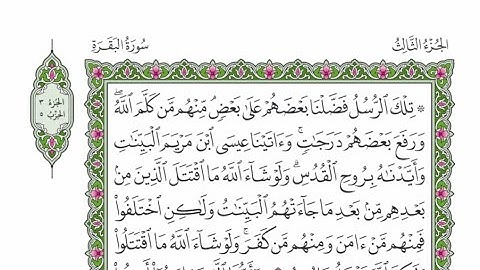 الجزء الثالث
سورة البقرة
الجزء ٣
الحزب ٥
۞ تِلْكَ ٱلرُّسُلُ فَضَّلْنَا بَعْضَهُمْ عَلَىٰ بَعْضٍ مِّنْهُم مَّن كَلَّمَ ٱللَّهُ ۖ
وَرَفَعَ بَعْضَهُمْ دَرَجَٰتٍ ۚ وَءَاتَيْنَا عِيسَى ٱبْنَ مَرْيَمَ ٱلْبَيِّنَٰتِ
وَأَيَّدْنَٰهُ بِرُوحِ ٱلْقُدُسِ ۗ وَلَوْ شَآءَ ٱللَّهُ مَا ٱقْتَتَلَ ٱلَّذِينَ مِنۢ
بَعْدِهِم مِّنۢ بَعْدِ مَا جَآءَتْهُمُ ٱلْبَيِّنَٰتُ وَلَٰكِنِ ٱخْتَلَفُوا۟
فَمِنْهُم مَّنْ ءَامَنَ وَمِنْهُم مَّن كَفَرَ ۚ وَلَوْ شَآءَ ٱللَّهُ مَا ٱقْتَتَلُوا۟